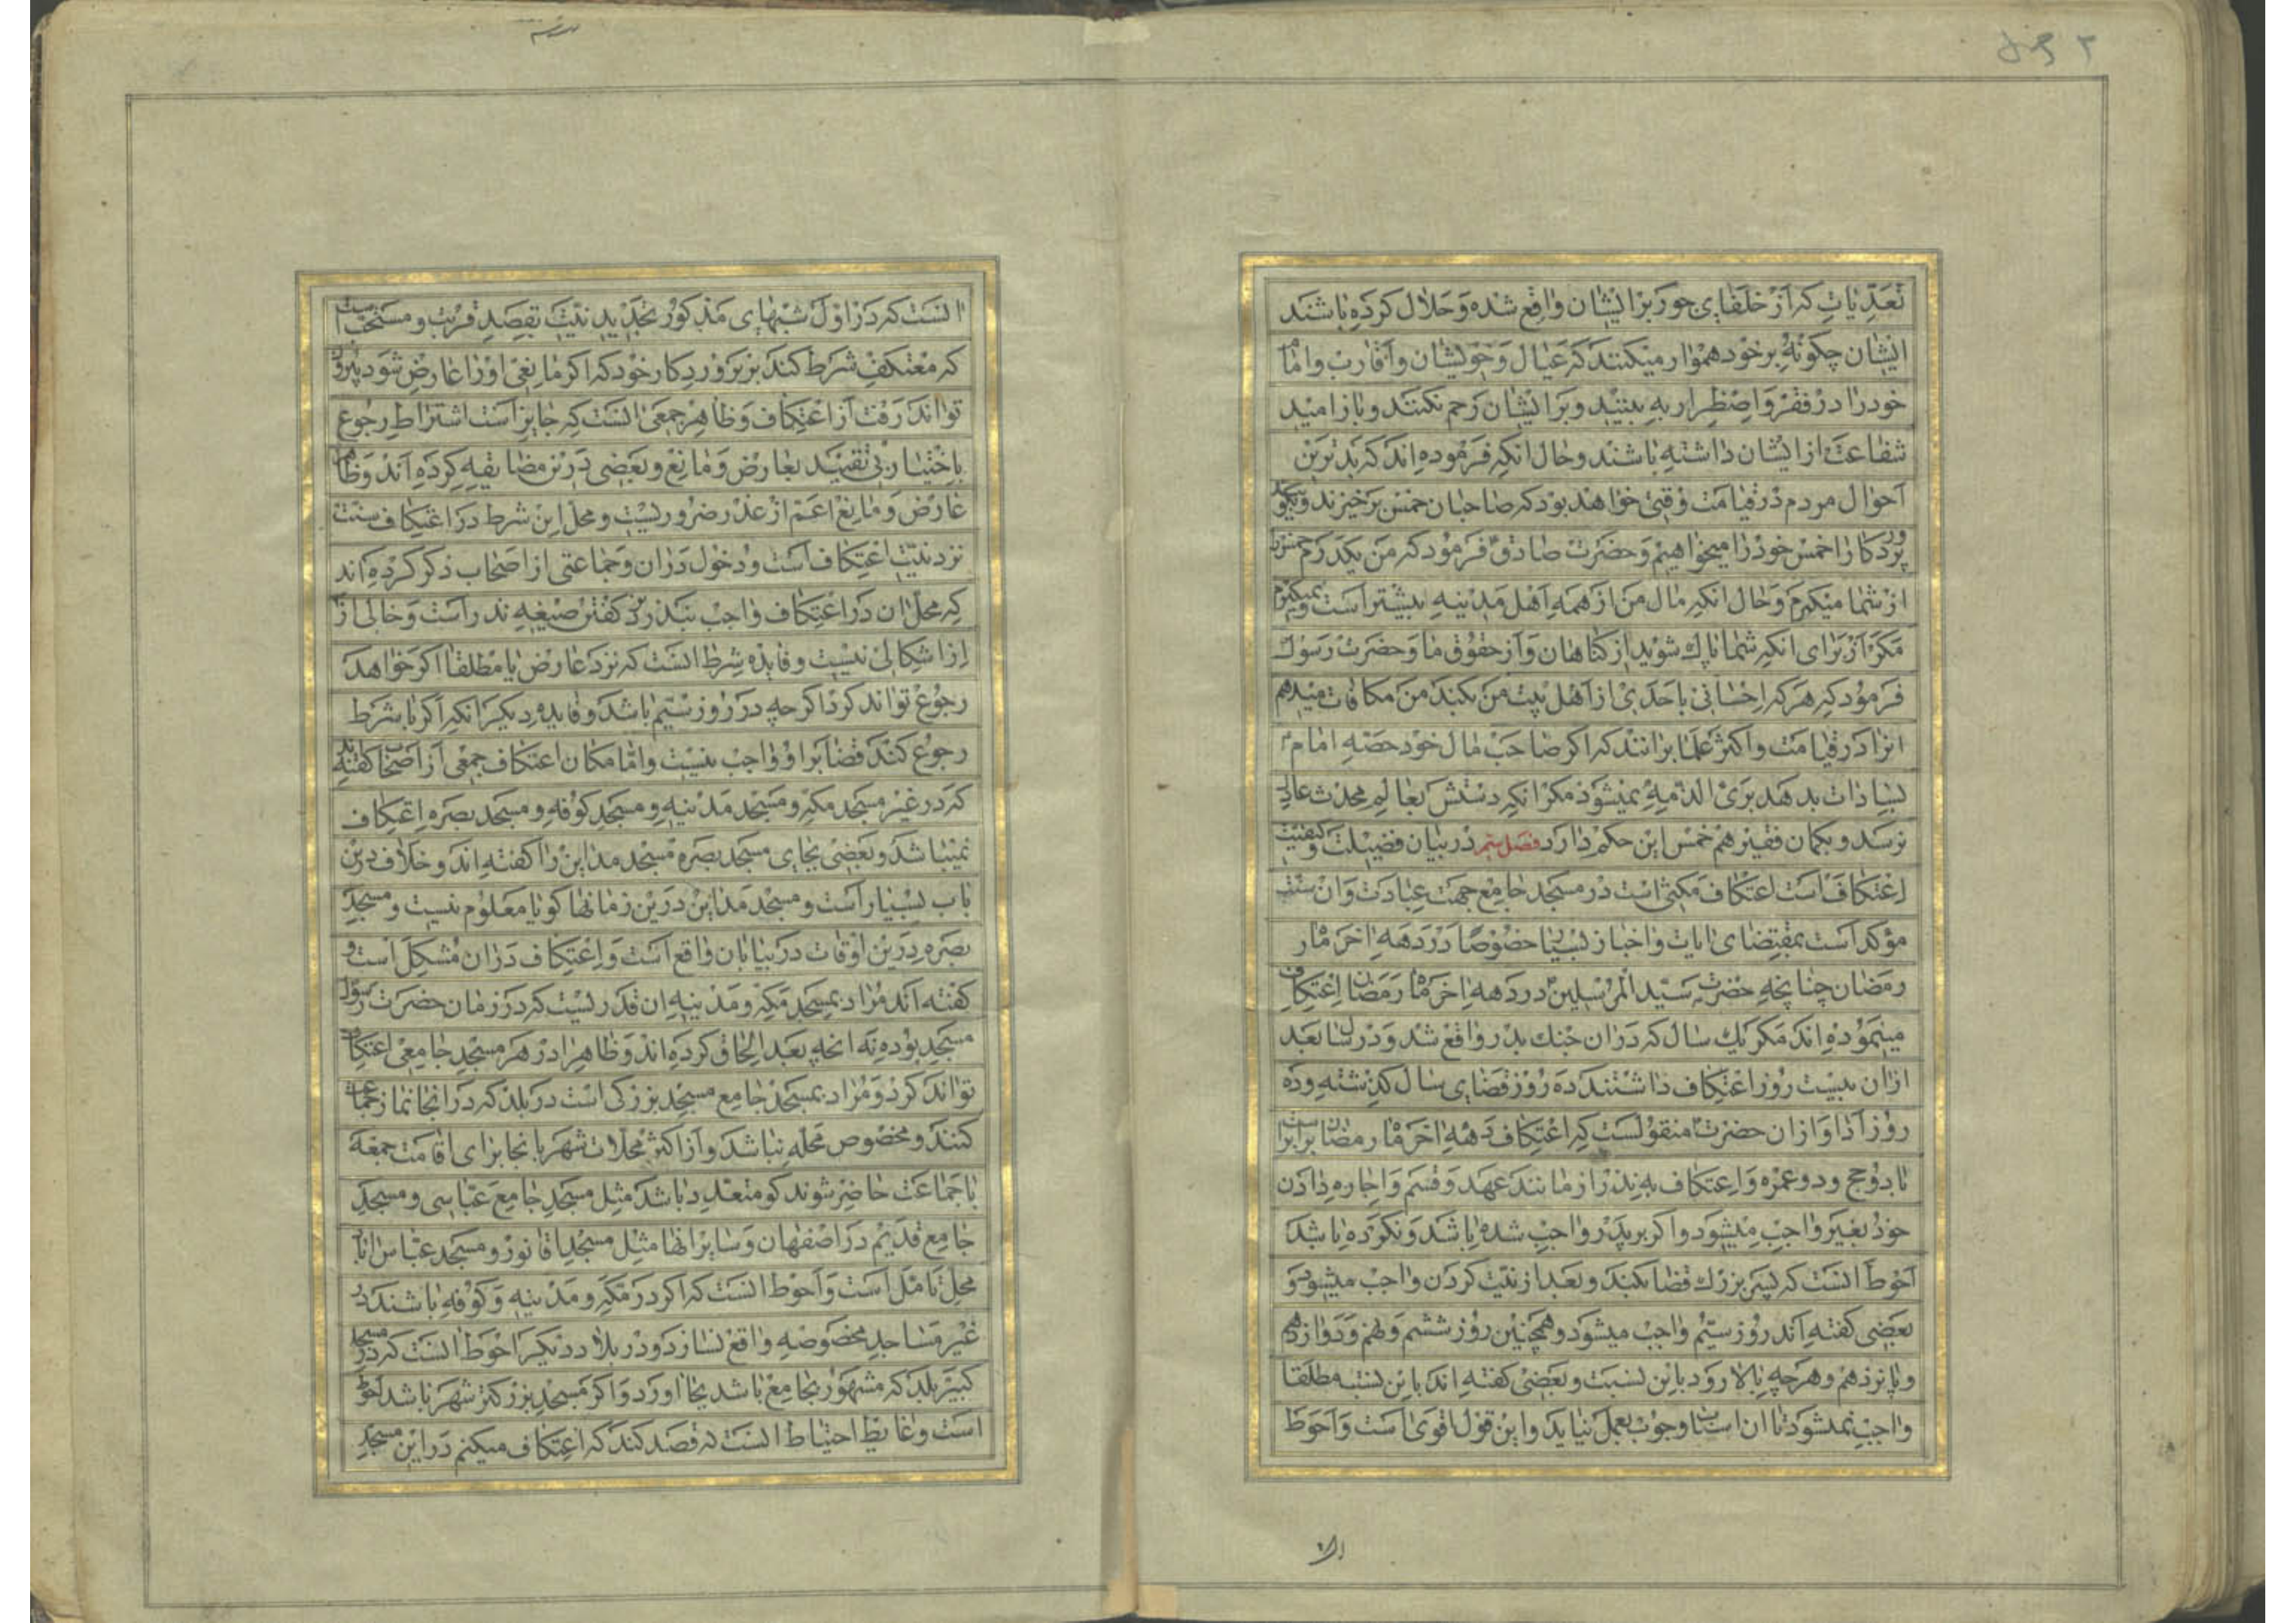 تعدیات که از خلفای جور بر ایشان واقع شده و حلال کرده باشند
ایشان چگونه بر خود هموار میکنند که عیال و خویشان و اقارب و امام
خود را در فقر و اضطرار به بینید و بر ایشان رحم نکنند و باز امید
شفاعت از ایشان داشته باشند و حال انکه فرموده اند که بدترین
احوال مردم در قیامت وقتی خواهد بود که صاحبان خمس برخیزند و بگویند
پروردکارا خمس خود را میخواهیم و حضرت صادق فرمود که من یکدرم خمس را
از شما میکیرم و حال انکه مال من از همه اهل مدینه بیشتر است و نمیکیرم
مکر از برای انکه شما پاک شوید از کناهان و از حقوق ما و حضرت رسول
فرمود که هرکه احسانی باحدی از اهل بیت من بکند من مکافات میدهم
انرا در قیامت و اکثر علما برانند که اکر صاحب مال خود حصه امام
بسادات بدهد بری الذمه نمیشود مکر انکه دستش بعالم محدث عادلی
نرسد و بکمان فقیر هم خمس این حکم دارد فصل پنجم در بیان فضیلت و کیفیت
اعتکاف است اعتکاف مکثی است در مسجد جامع جهت عبادت و ان سنت
مؤکد است بمقتضای ایات و اخبار بسیار خصوصا در دهه اخر ماه
رمضان چنانچه حضرت سید المرسلین در دهه اخر ماه رمضان اعتکاف
مینموده اند مکر یک سال که در ان جنک بدر واقع شد و در سال بعد
از ان بیست روز اعتکاف داشتند ده روز قضای سال کذشته و ده
روز ادا و از ان حضرت منقولست که اعتکاف دهه اخر ماه رمضان برابر است
با دو حج و دو عمره و اعتکاف به نذر از مانند عهد و قسم و اجاره دادن
خود بغیر واجب میشود و اکر بر پدر واجب شده باشد و نکرده باشد
احوط انست که پسر بزرک قضا بکند و بعد از نیت کردن واجب میشود و
بعضی کفته اند روز سیّم واجب میشود و همچنین روز ششم و نهم و دوازدهم
و پانزدهم و هرچه بالا رود باین نسبت و بعضی کفته اند باین نسبه مطلقا
واجب نمیشود تا ان اسباب وجوب بعمل نیاید و این قول اقوی است و احوط
انست که در اول شبهای مذکور تجدید نیت بقصد قربت و مستحب است
که معتکف شرط کند بر پروردکار خود که اکر مانعی او را عارض شود بیرون
تواند رفت از اعتکاف و ظاهر جمعی انست که جایز است اشتراط رجوع
باختیار بی تقیید بعارض و مانع و بعضی در این مضایقه کرده اند و ظاهرا
عارض و مانع اعم از عذر ضروریست و محل این شرط در اعتکاف سنت
نزد نیت اعتکاف است و دخول در ان و جماعتی از اصحاب ذکر کرده اند
که محل ان در اعتکاف واجب بنذر نزد کفتن صیغه نذر است و خالی از
از اشکالی نیست و فایده شرط انست که نزد عارض یا مطلقا اکر خواهد
رجوع تواند کرد اکرچه در روز سیّم باشد و فایده دیکر انکه اکر با شرط
رجوع کند قضا بر او واجب نیست و اما مکان اعتکاف جمعی از اصحاب کفته اند
که در غیر مسجد مکه و مسجد مدینه و مسجد کوفه و مسجد بصره اعتکاف
نمیباشد و بعضی بجای مسجد بصره مسجد مداین را کفته اند و خلاف درین
باب بسیار است و مسجد مداین درین زمانها کویا معلوم نیست و مسجد
بصره درین اوقات در بیابان واقع است و اعتکاف در ان مشکل است و
کفته اند مراد بمسجد مکه و مدینه ان قدریست که در زمان حضرت رسول
مسجد بوده نه انچه بعد الحاق کرده اند و ظاهرا در هر مسجد جامعی اعتکاف
تواند کرد و مراد بمسجد جامع مسجد بزرکی است در بلد که در انجا نماز جماعت
کنند و مخصوص محله نباشد و از اکثر محلات شهر بانجا برای اقامت جمعه
یا جماعت حاضر شوند کو متعدد باشد مثل مسجد جامع عباسی و مسجد
جامع قدیم در اصفهان و سایر انها مثل مسجد اقا نور و مسجد عباس اناد
محل تامل است و احوط انست که اکر در مکه و مدینه و کوفه باشند در
غیر مساجد مخصوصه واقع نسازد و در بلاد دیکر احوط انست که در مسجد
کبیر بلد که مشهور بجامع باشد بجا اورد و اکر مسجد بزرکتر شهر باشد احوط
است و غایط احتیاط انست که قصد کند که اعتکاف میکنم در این مسجد